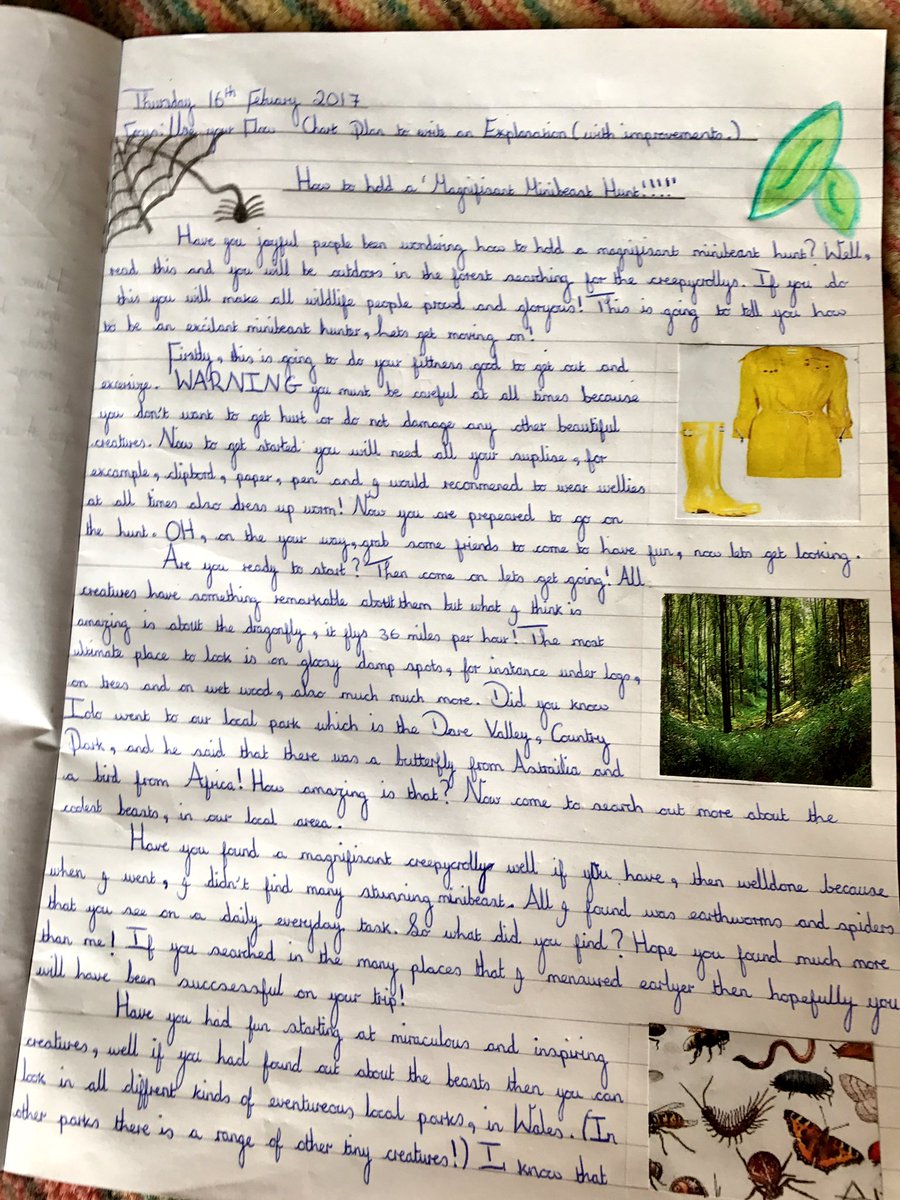 Thursday 16th Febuary 2017
Focus: Use your Flow Chart Plan to write an Explanation (with improvements.)
How to hold a 'Magnifisant Minibeast Hunt'!!!!"
Have you joyful people been wondering how to hold a magnifisant minibeast hunt? Well,
read this and you will be outdoors in the forest searching for the creepycrollys. If you do
this you will make all wildlife people prowd and gloryous! This is going to tell you how
to be an excilant minibeast hunter, lets get moving on!
Firstly, this is going to do your fittness good to get out and
excersize. WARNING you must be careful at all times because
you don't want to get hurt or do not damage any other beautiful
creatures. Now to get started you will need all your suplise, for
excample, clipbord, paper, pen and I would recommened to wear wellies
at all times also dress up worm! Now you are prepeared to go on
the hunt. OH, on the your way, grab some friends to come to have fun, now lets get looking.
Are you ready to start? Then come on lets get going! All
creatures have something remarkable about them but what I think is
amazing is about the dragonfly, it flys 36 miles per hour! The most
ultimate place to look is on gloomy damp spots, for instance under logs,
on trees and on wet wood, also much much more. Did you know
went to our local park which is the Dare Valley, Country
Park, and he said that there was a butterfly from Astrailia and
a bird from Africa! How amazing is that? Now come to search out more about the
coolest beasts, in our local area.
Have you found a magnifisant creepycrolly well if you have, then welldone because
when I went, I didn't find many stunning minibeast. All I found was earthworms and spiders
that you see on a daily everyday task. So what did you find? Hope you found much more
than me! If you searched in the many places that I menaured earlyer then hopefully you
will have been succsessful on your trip!
Have you had fun starting at miraculous and inspiring
creatures, well if you had found out about the beasts then you can
look in all diffrent kinds of eventureous local parks, in Wales. (In
other parks there is a range of other tiny creatures!) I know that